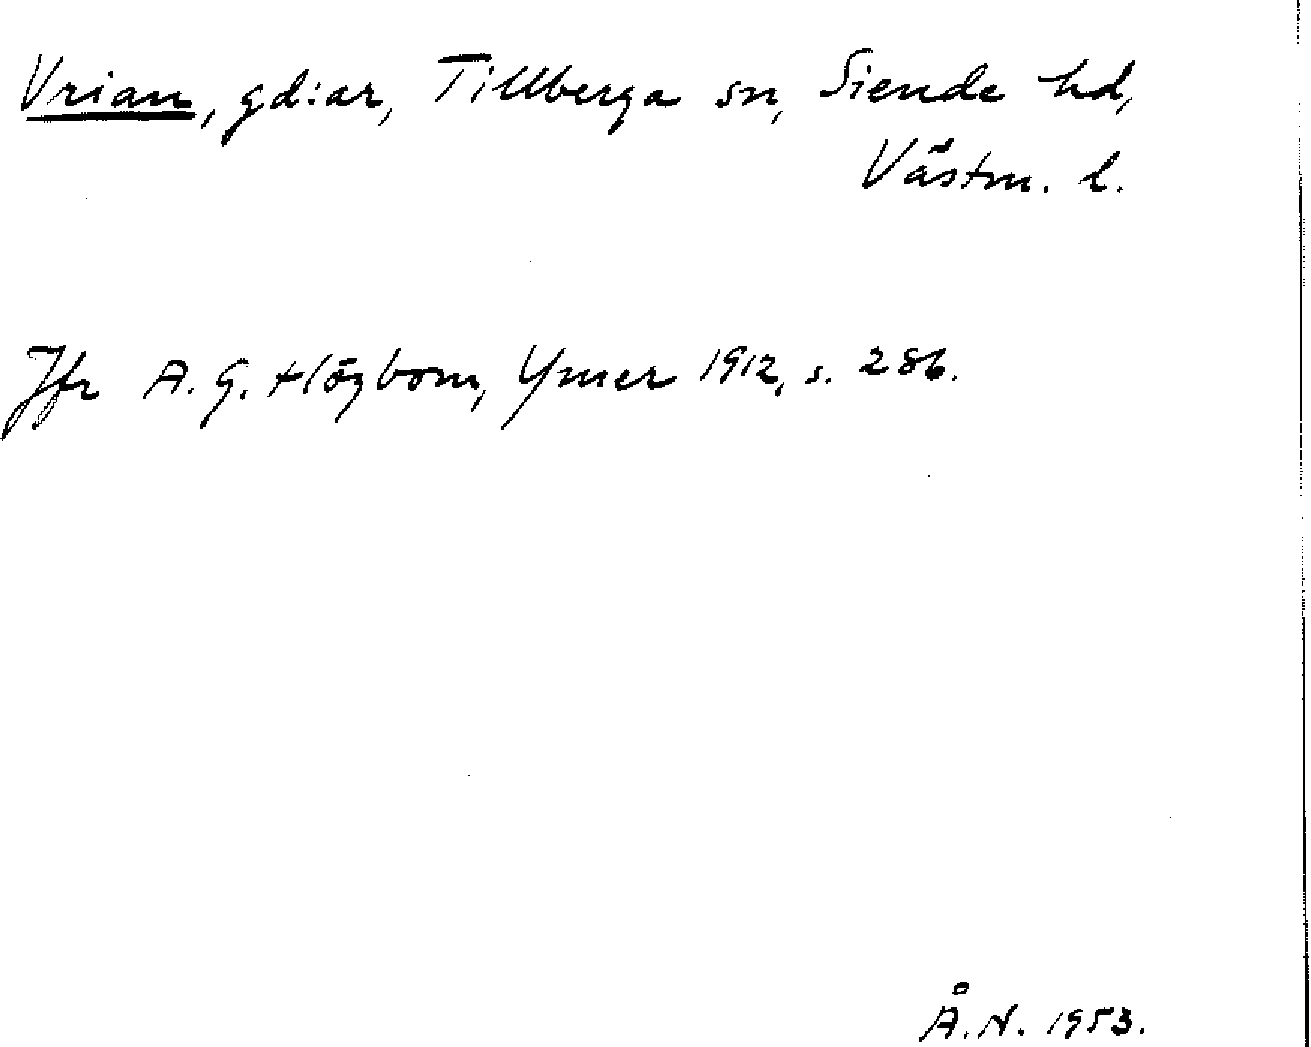 Vrian, gd:ar, Tillberga sn, Siende hd,
Västm. l.
Jfr A. G. Högbom, Ymer 1912, s. 286.
Å. N. 1953.